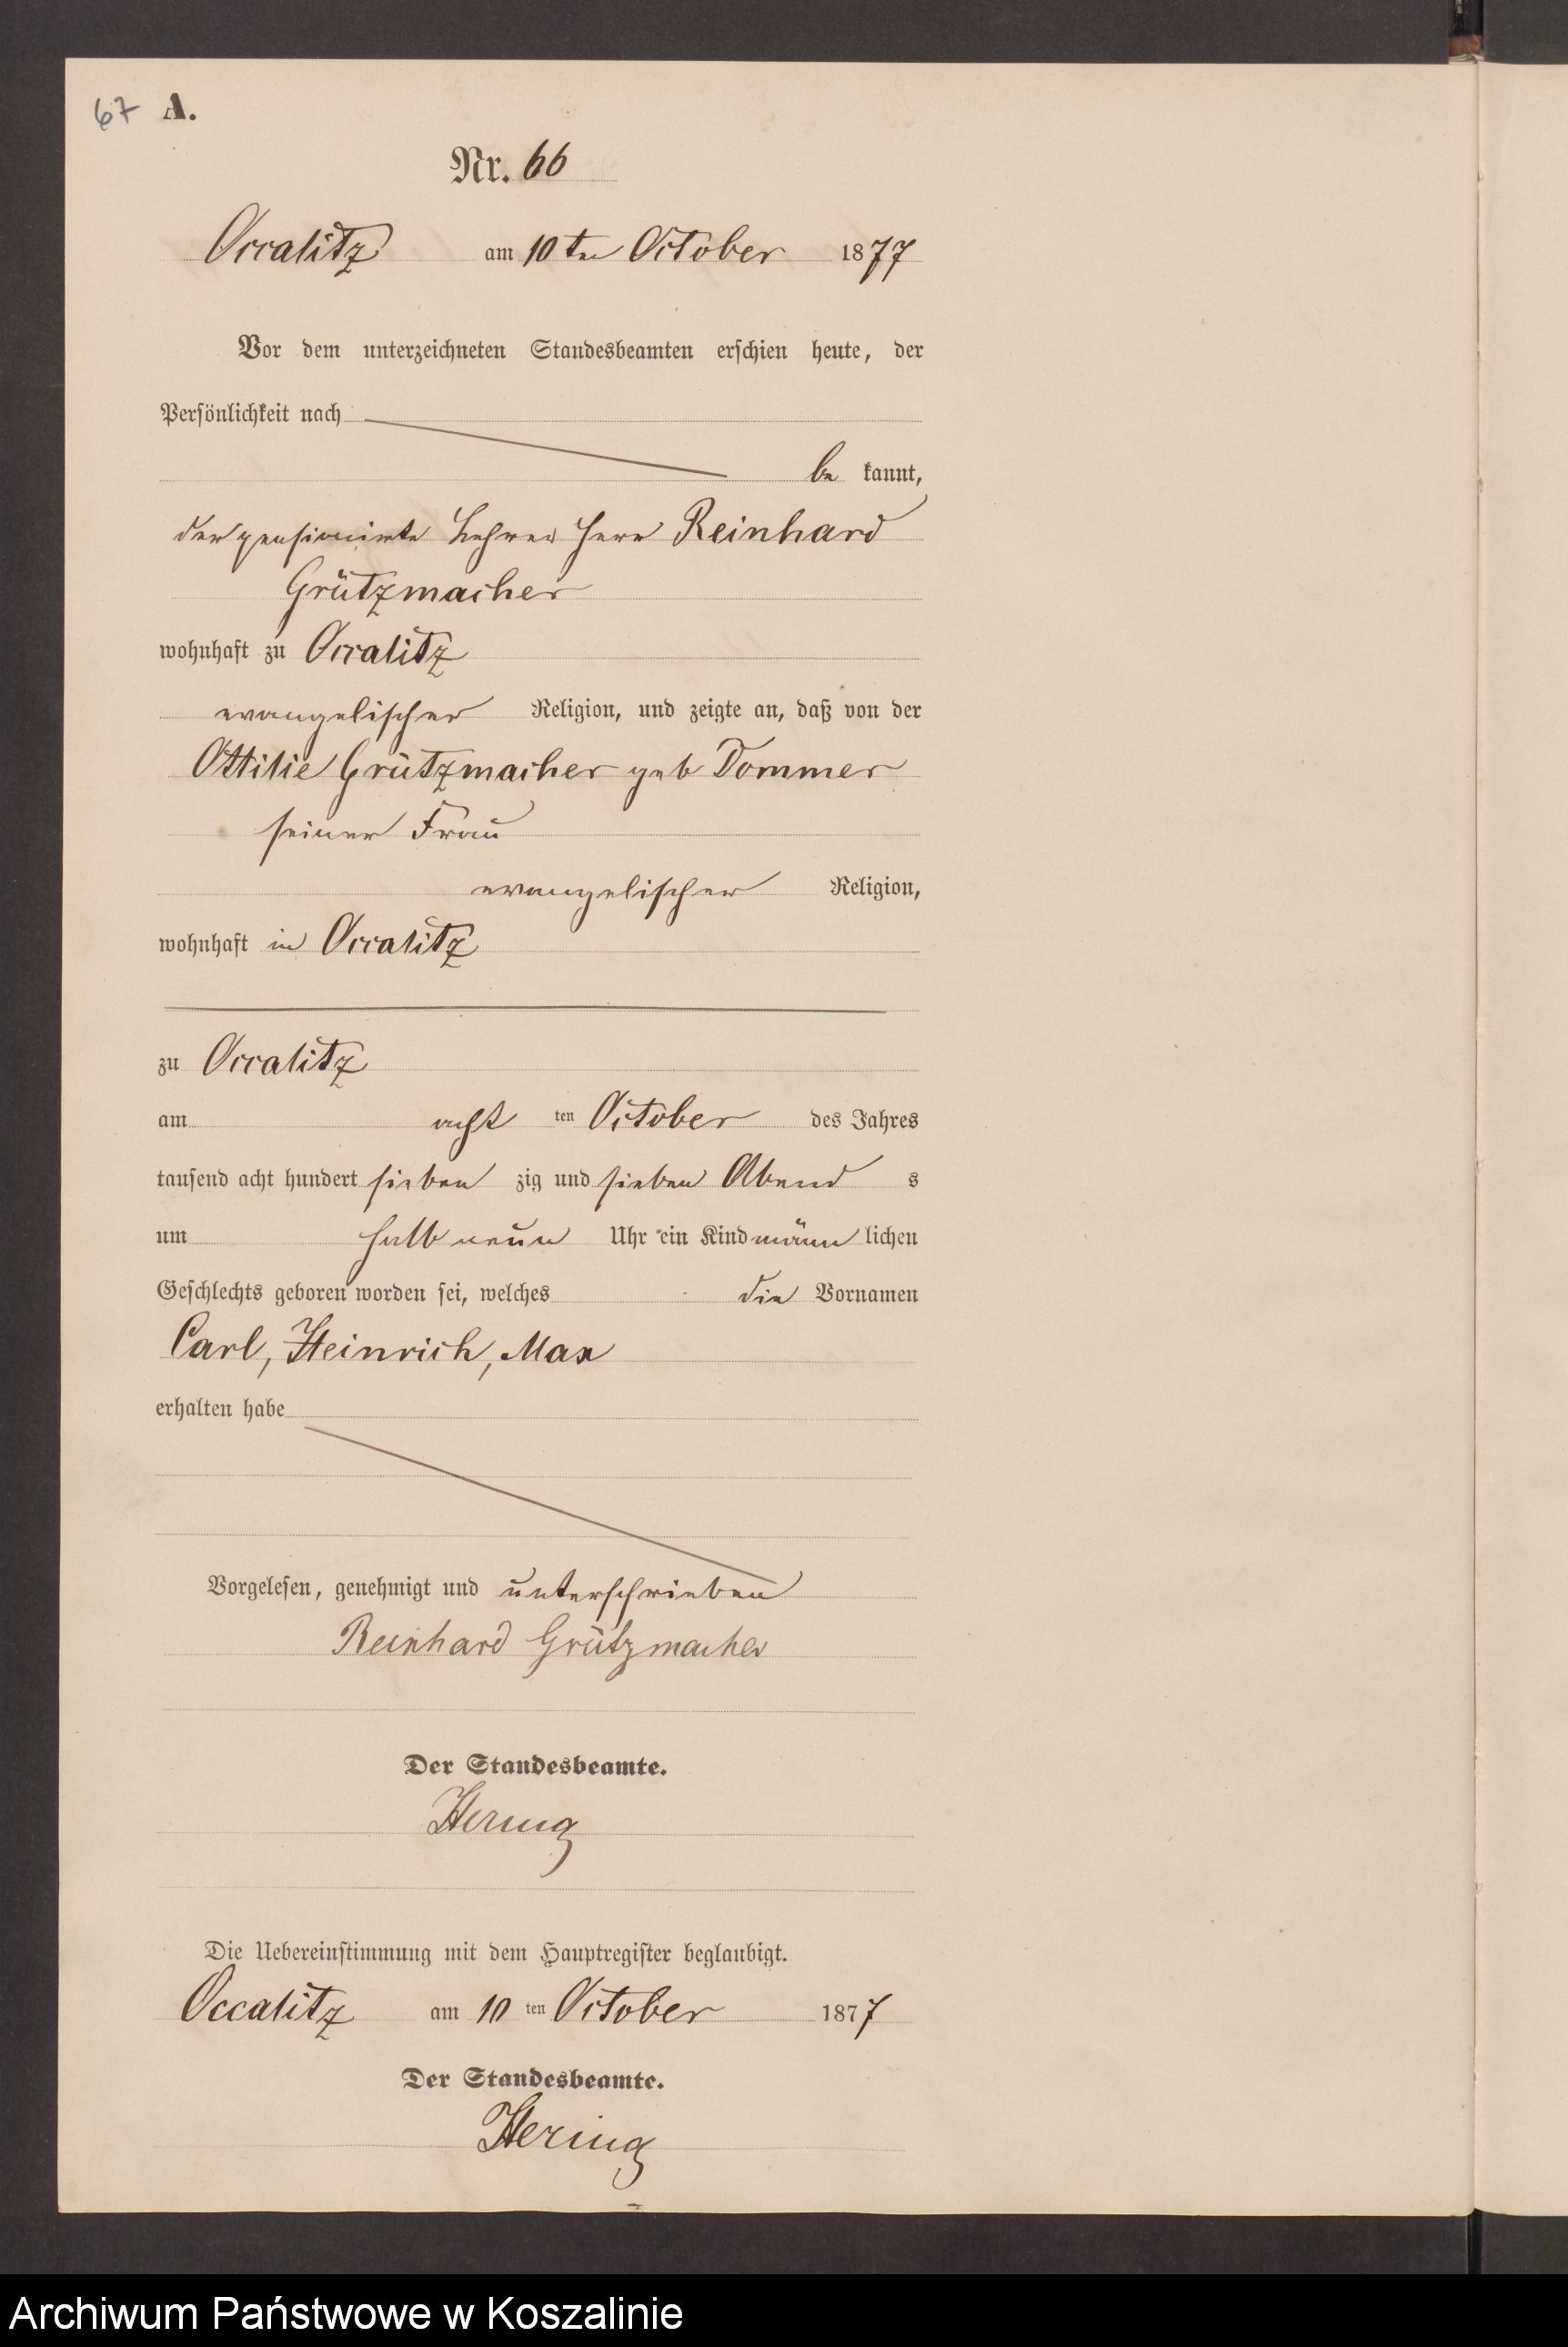 67 A.
Nr. 66
Occalitz am 10ten October 1877
Vor dem unterzeichneten Standesbeamten erschien heute, der
Persönlichkeit nach
be kannt,
der pensionirte Lehrer Herr Reinhard
Grützmacher
wohnhaft zu Occalitz
evangelischer Religion, und zeigte an, daß von der
Ottilie Grützmacher geb Dommer
seiner Frau
evangelischer Religion,
wohnhaft in Occalitz
zu Occalitz
am acht ten October des Jahres
tausend acht hundert sieben zig und sieben Abend s
um halb neun Uhr ein Kind männ lichen
Geschlechts geboren worden sei, welches die Vornamen
Carl, Heinrich, Max
erhalten habe
Vorgelesen, genehmigt und unterschrieben
Reinhard Grützmacher
Der Standesbeamte.
Hering
Die Uebereinstimmung mit dem Hauptregister beglaubigt.
Occalitz am 10 ten October 1877
Der Standesbeamte.
Hering
Archiwum Państwowe w Koszalinie